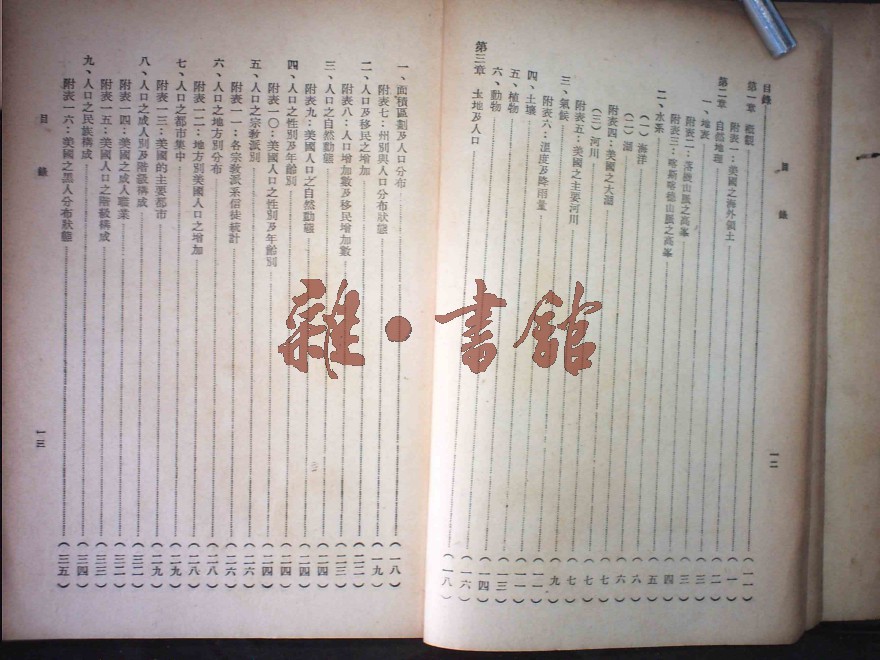 目錄
目錄
第一章 概觀
附表一：美國之海外領土
第二章 自然地理
一、地表
附表二：落磯山脈之高峯
附表三：喀斯喀德山脈之高峯
二、水系
（一）海洋
（二）湖
附表四：美國之大湖
（三）河川
附表五：美國之主要河川
三、氣候
附表六：溫度及降雨量
四、土壤
五、植物
六、動物
第三章 土地及人口（一八）
一二
一、面積區劃及人口分布（一八）
附表七：州別與人口分布狀態（一九）
二、人口及移民之增加（二二）
附表八：人口增加數及移民增加數
三、人口之自然動態（二四）
附表九：美國人口之自然動態（二四）
四、人口之性別及年齡別（二四）
附表一〇：美國人口之性別及年齡別（二四）
五、人口之宗教派別（二六）
附表一一：各宗教派系信徒統計（二六）
六、人口之地方別分布（二八）
附表一二：地方別美國人口之增加（二八）
七、人口之都市集中（二九）
附表一三：美國的主要都市（二九）
八、人口之成人別及階級構成（三一）
附表一四：美國之成人職業（三二）
附表一五：美國人口之階級構成（三三）
九、人口之民族構成（三四）
附表一六：美國之黑人分布狀態（三五）
目錄
一三
雜·書館